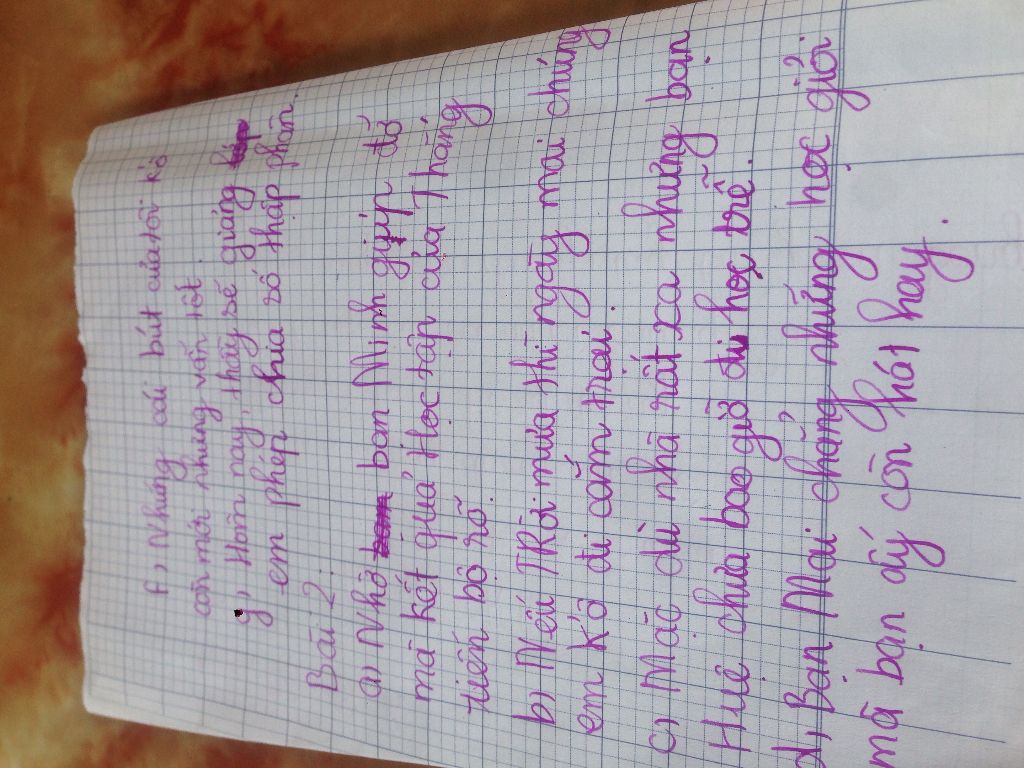 f, Những cái bút của tôi kô
còn mới nhưng vẫn tốt
g, Hôm nay, thầy sẽ giảng
em phép chia số thập phân.
Bài 2:
a) Nhờ bạn Minh giúp đỡ
mà kết quả Học tập của Thắng
tiến bộ rõ
b) Nếu TRời mưa thì ngày mai chúng
em kô đi cắm trại
c) Mặc dù nhà rất xa nhưng bạn
Huệ chưa bao giờ đi học trễ.
d, Bạn Mai chẳng những học giỏi
mà bạn ấy còn hát hay.